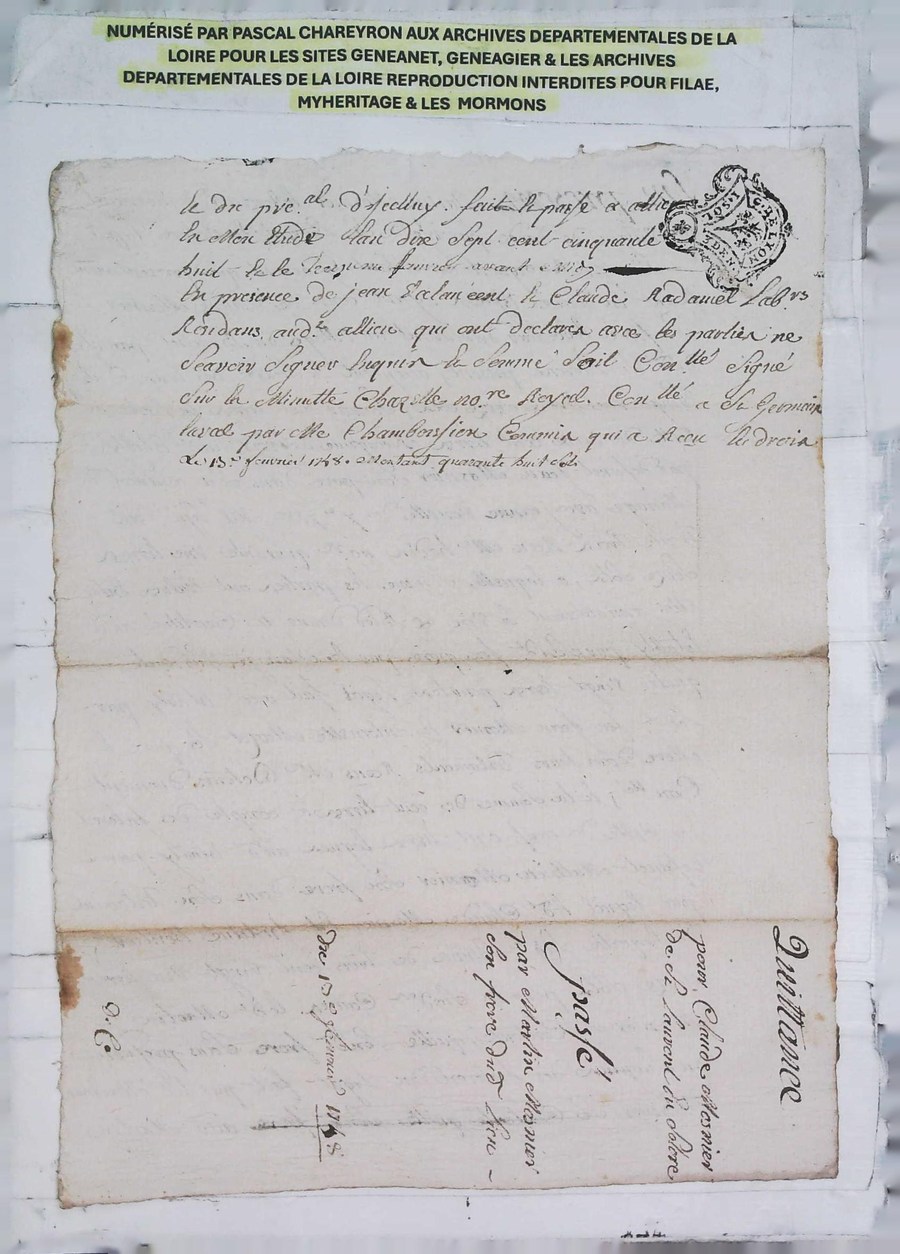 NUMÉRISÉ PAR PASCAL CHAREYRON AUX ARCHIVES DEPARTEMENTALES DE LA
LOIRE POUR LES SITES GENEANET, GENEAGIER & LES ARCHIVES
DEPARTEMENTALES DE LA LOIRE REPRODUCTION INTERDITES POUR FILAE,
MYHERITAGE & LES MORMONS
GNE LYON
DEN
le dre d'Iselluy. fait & passé a allieu
En Mon Etude Lan Dixe Sept cent cinquante
huit & le avant midy
En presence de jean & Claude Radamel Lab.rs
Residans aud.t allieu qui ont declares avec les parties ne
Scavoir Signer Enquis & Somme Soil Con.llé Signé
Sur la Minutte Chazelle no.re Royal. Con.llé a St Germain
Laval par Me Chamboissien Commis qui a Receu les droits
Le 13.e feuvrier montant quarante huit sols
Quittance
pour Claude Mosnier
de St Laurent
passé
par Martin Mosnier
son frere dud Lieu
du 13 feuvrier